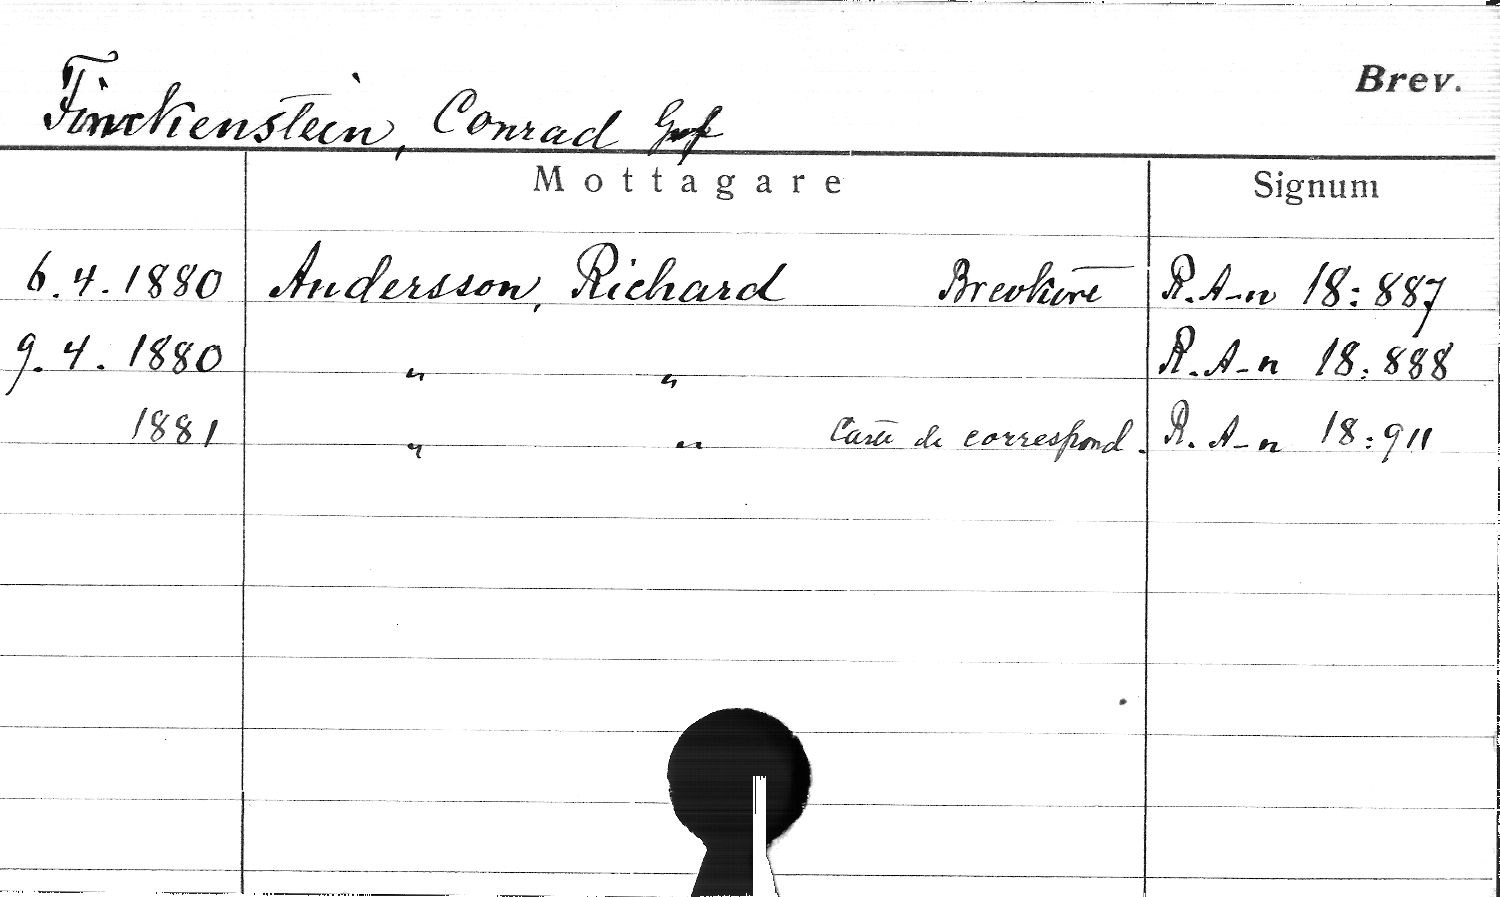 Brev.
Finckenstein, Conrad Graf
Mottagare Signum
6.4.1880 Andersson, Richard R.A-n 18:887
9.4.1880 " " R.A-n 18:888
1881 " " Carte de correspond. R.A-n 18:911